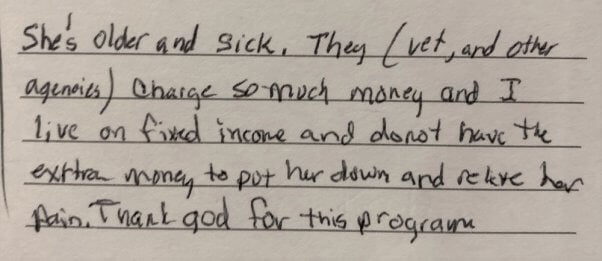 She's older and sick. They (vet, and other
agencies) Charge so much money and I
live on fixed income and donot have the
exrtra money to put her down and releve her
pain. Thank god for this program